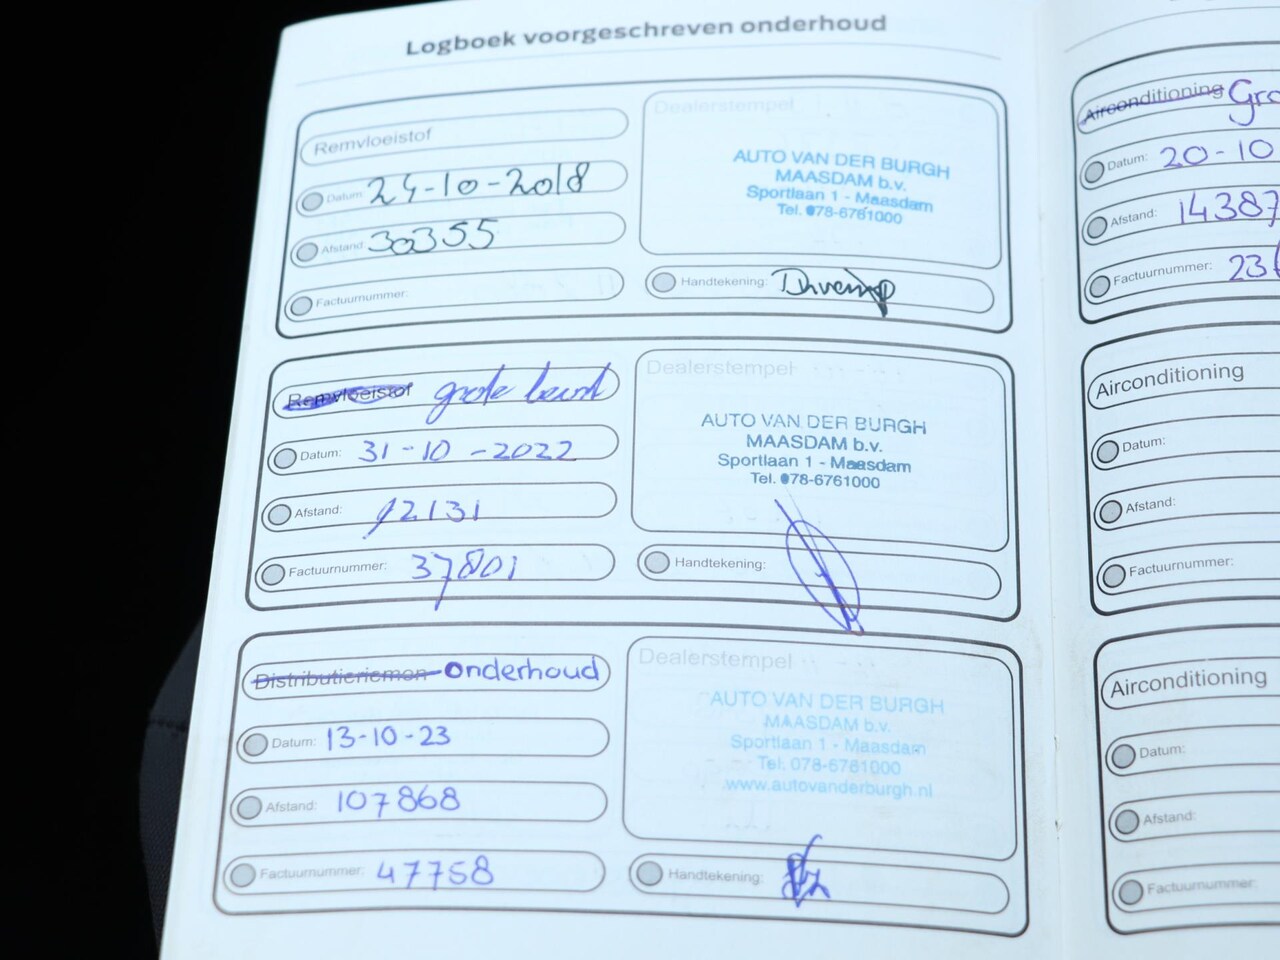 Logboek voorgeschreven onderhoud
Remvloeistof
Datum: 24-10-2018
Afstand: 30355
Factuurnummer:
Dealerstempel
AUTO VAN DER BURGH
MAASDAM b.v.
Sportlaan 1 - Maasdam
Tel. 078-6761000
Handtekening:
Remvloeistof grote beurt
Datum: 31-10-2022
Afstand: 92131
Factuurnummer: 37801
Dealerstempel
AUTO VAN DER BURGH
MAASDAM b.v.
Sportlaan 1 - Maasdam
Tel. 078-6761000
Handtekening:
Distributieriemen onderhoud
Datum: 13-10-23
Afstand: 107868
Factuurnummer: 47758
Dealerstempel
AUTO VAN DER BURGH
MAASDAM b.v.
Sportlaan 1 - Maasdam
Tel. 078-6761000
www.autovanderburgh.nl
Handtekening:
Airconditioning Gro
Datum: 20-10
Afstand: 14387
Factuurnummer: 23
Airconditioning
Datum:
Afstand:
Factuurnummer:
Airconditioning
Datum:
Afstand:
Factuurnummer: